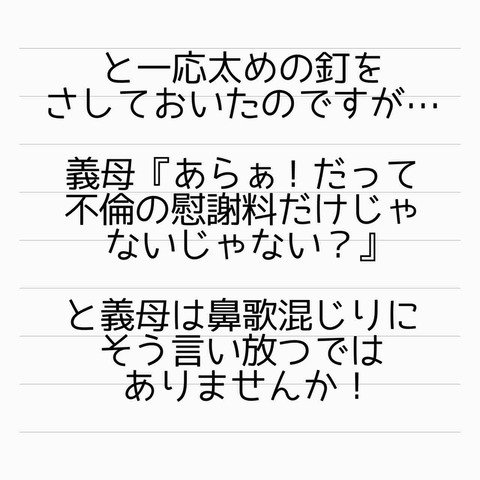 と一応太めの釘を
さしておいたのですが…
義母『あらぁ！だって
不倫の慰謝料だけじゃ
ないじゃない？』
と義母は鼻歌混じりに
そう言い放つでは
ありませんか！